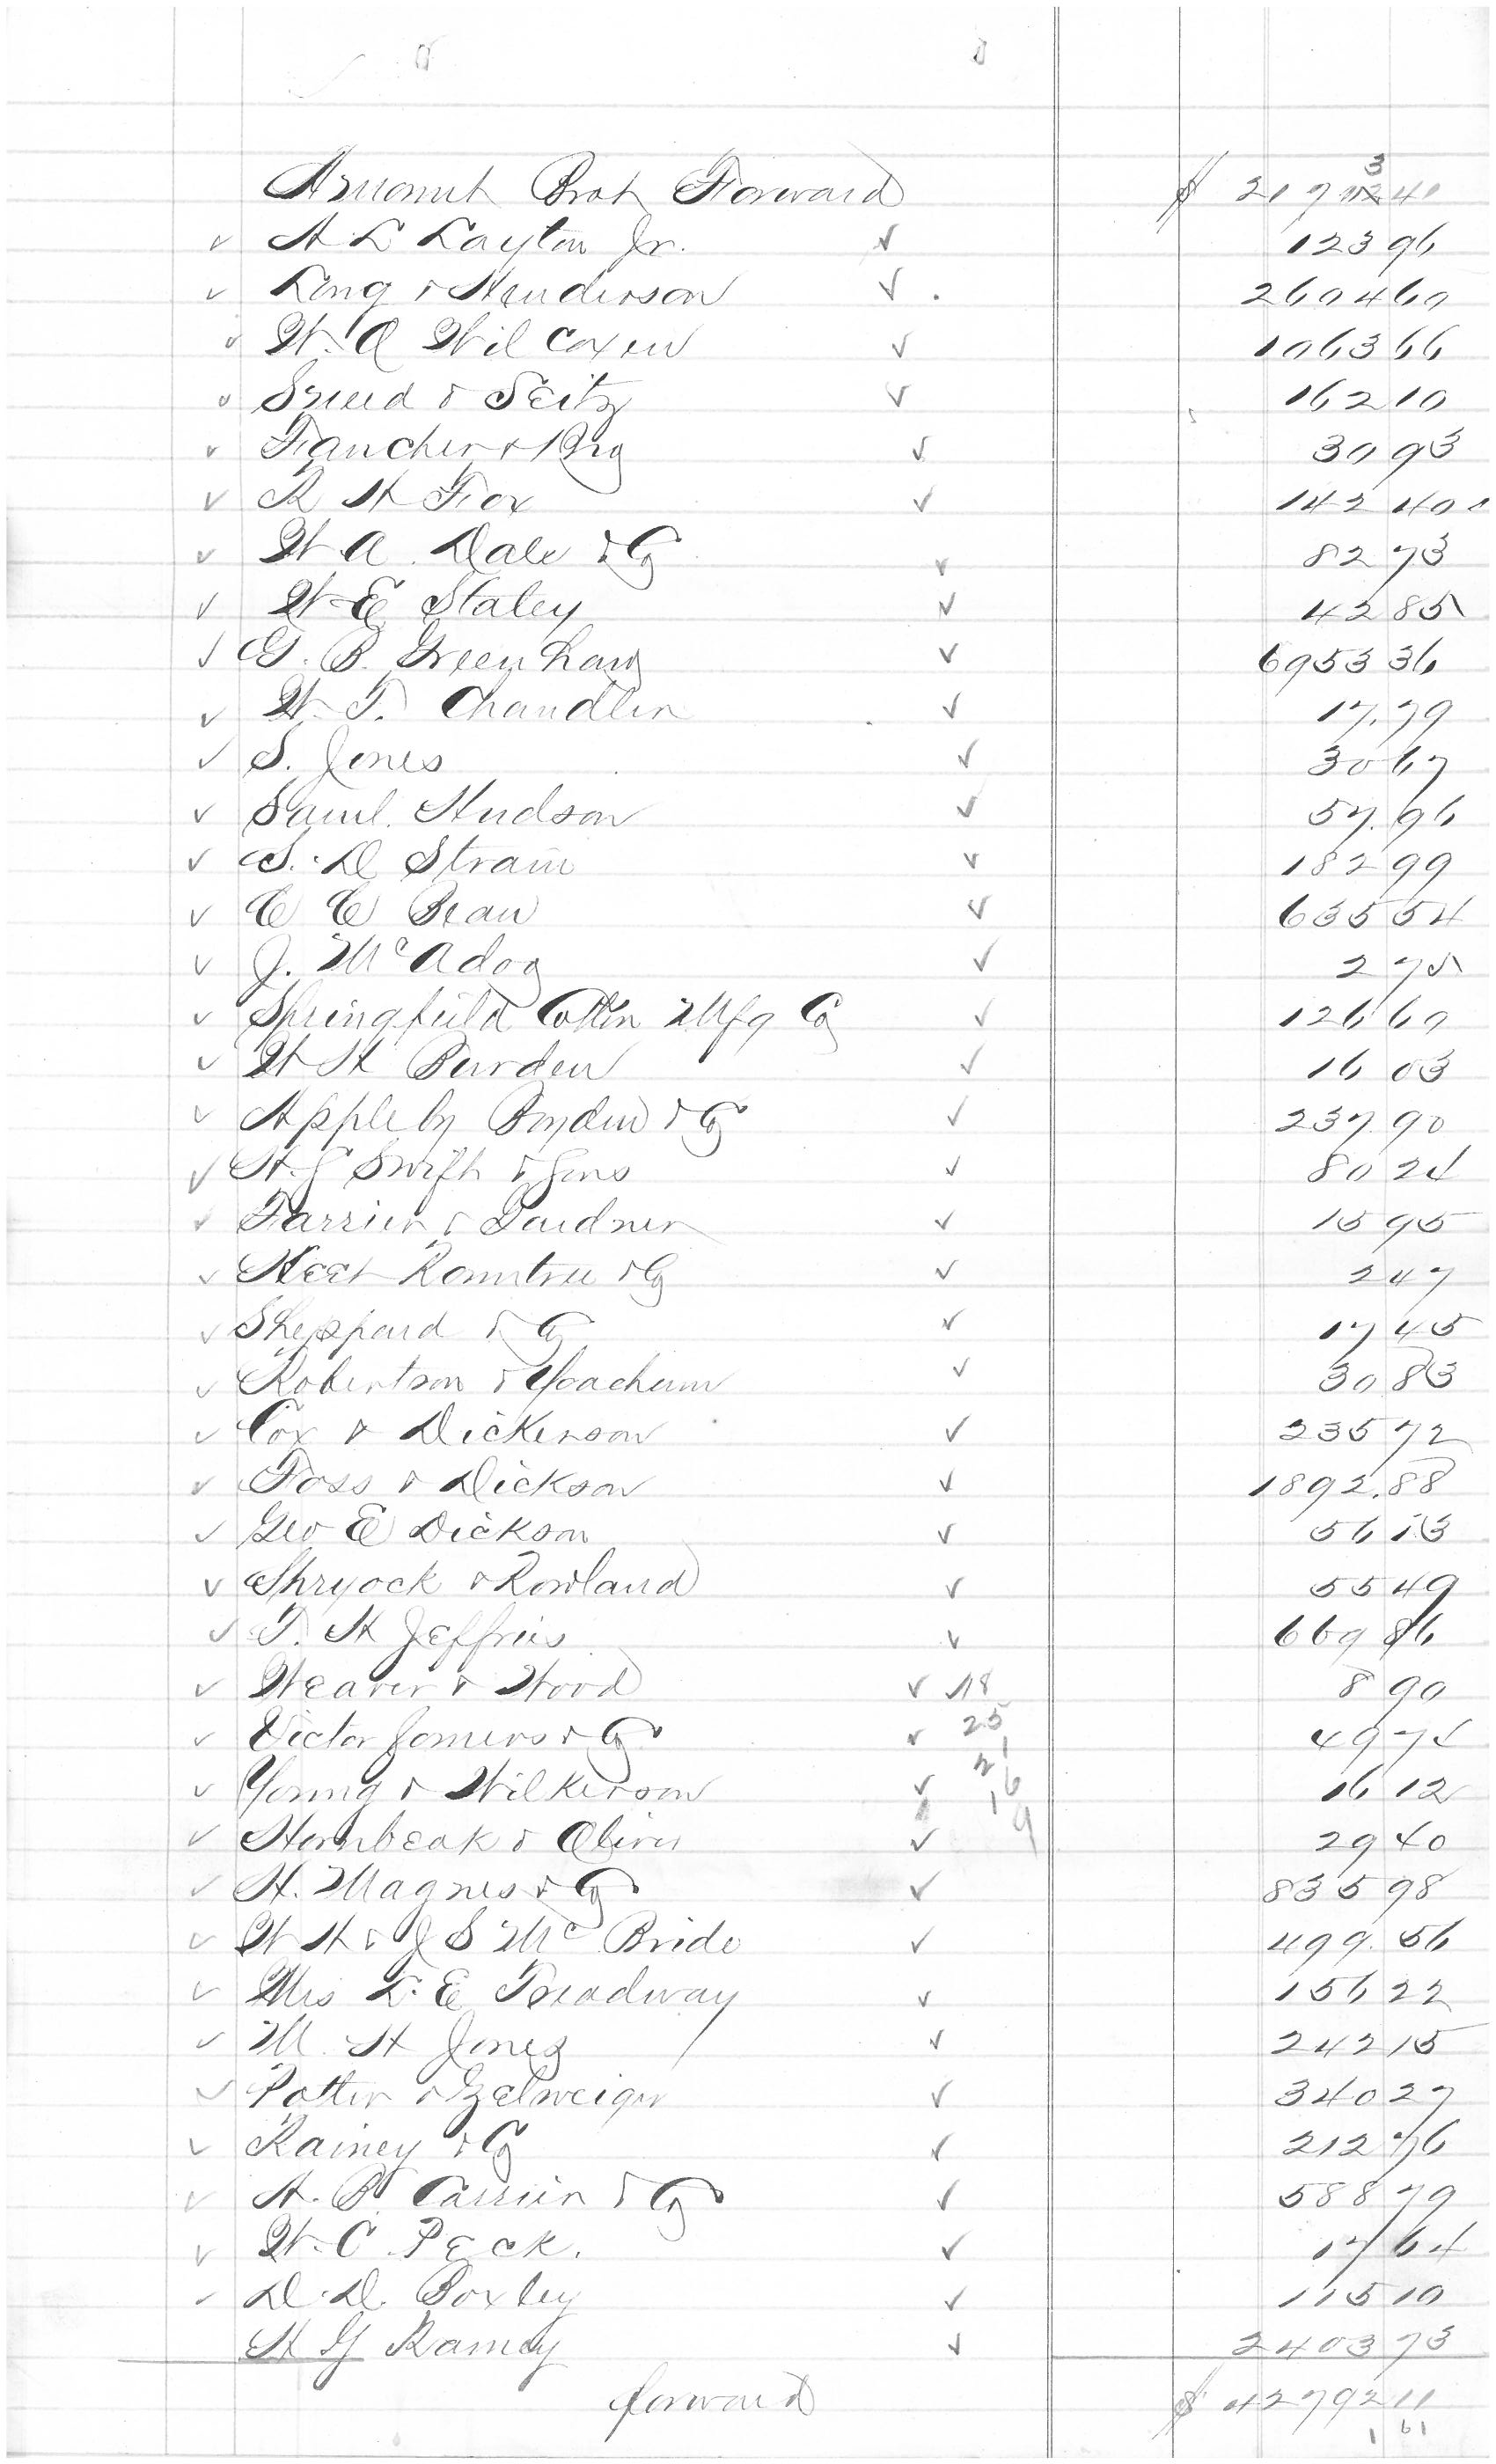 Amount Brot Forward $ 2171 3 40
✓ A L Layton Jr. ✓ 123 96
✓ Long & Henderson ✓ 2604 60
✓ W. A Wilcoxen ✓ 1063 66
✓ Sneed & Seitz ✓ 162 10
✓ Fancher & Bro ✓ 30 93
✓ R H Fox ✓ 142 40
✓ W A. Dale & Co ✓ 82 73
✓ W E Staley ✓ 42 85
✓ G. B. Greenhaw ✓ 6953 36
✓ W. T. Chandler ✓ 17.79
✓ S. Jones ✓ 30 67
✓ Saml. Hudson ✓ 57.96
✓ S. D Strain ✓ 182 99
✓ C C Bean ✓ 635 54
✓ J. McAdoo ✓ 2 75
✓ Springfield Cotton Mfg Co ✓ 126 60
✓ W H Burden ✓ 16 03
✓ Appleby Boyden & Co ✓ 237.90
✓ H. J Swift & Sons ✓ 80 24
✓ Farrier & Gardner ✓ 15 95
✓ Keet Rountree & Co ✓ 2 47
✓ Sheppard & Co ✓ 17 45
✓ Robertson & Yoachum ✓ 30 83
✓ Cox & Dickerson ✓ 235 72
✓ Foss & Dickson ✓ 1892.88
✓ Geo E Dickson ✓ 56 13
✓ Shryock & Rowland ✓ 55 49
✓ T. H Jeffries ✓ 669 86
✓ Weaver & Wood ✓ 18 8 90
✓ Victor Somers & Co ✓ 25 49 74
21
✓ Young & Wilkerson ✓ 16 16 12
9
✓ Hornbeak & Oliver ✓ 29 40
✓ H. Magnes & Co ✓ 835 98
✓ W H & J S McBride ✓ 499.56
✓ Mrs L. E Treadway ✓ 156 22
✓ M. H Jones ✓ 242 15
✓ Potter & Zelweiger ✓ 340 27
✓ Rainey & Co ✓ 212 76
✓ A. B Carrier & Co ✓ 588 79
✓ W. C Peck. ✓ 17 64
✓ D. D. Boxley ✓ 115 10
H G Ramey ✓ 2403 73
forward $ 42792 11
1 61